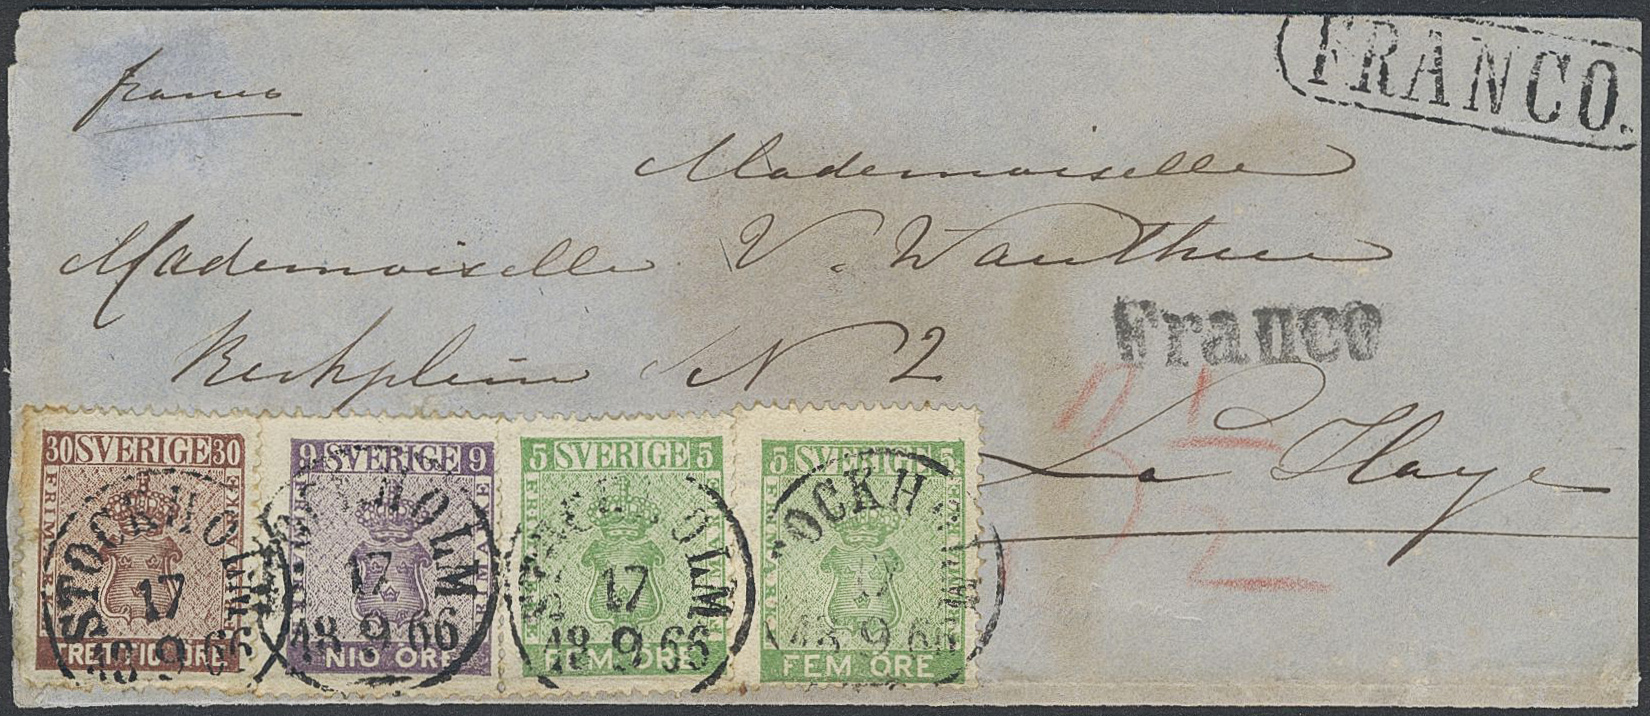 franco
FRANCO.
Mademoiselle
Mademoiselle V. Wauthier
Franco
Kerkplein N 2
3 1/2
La Haye
30 SVERIGE 30
FRIMÄRKE
FRIMÄRKE
TRETTIO ÖRE
9 SVERIGE 9
FRIMÄRKE
FRIMÄRKE
NIO ÖRE
5 SVERIGE 5
FRIMÄRKE
FRIMÄRKE
FEM ÖRE
5 SVERIGE 5
FRIMÄRKE
FRIMÄRKE
FEM ÖRE
STOCKHOLM
17
18 9 66
STOCKHOLM
17
18 9 66
STOCKHOLM
17
18 9 66
STOCKHOLM
17
18 9 66